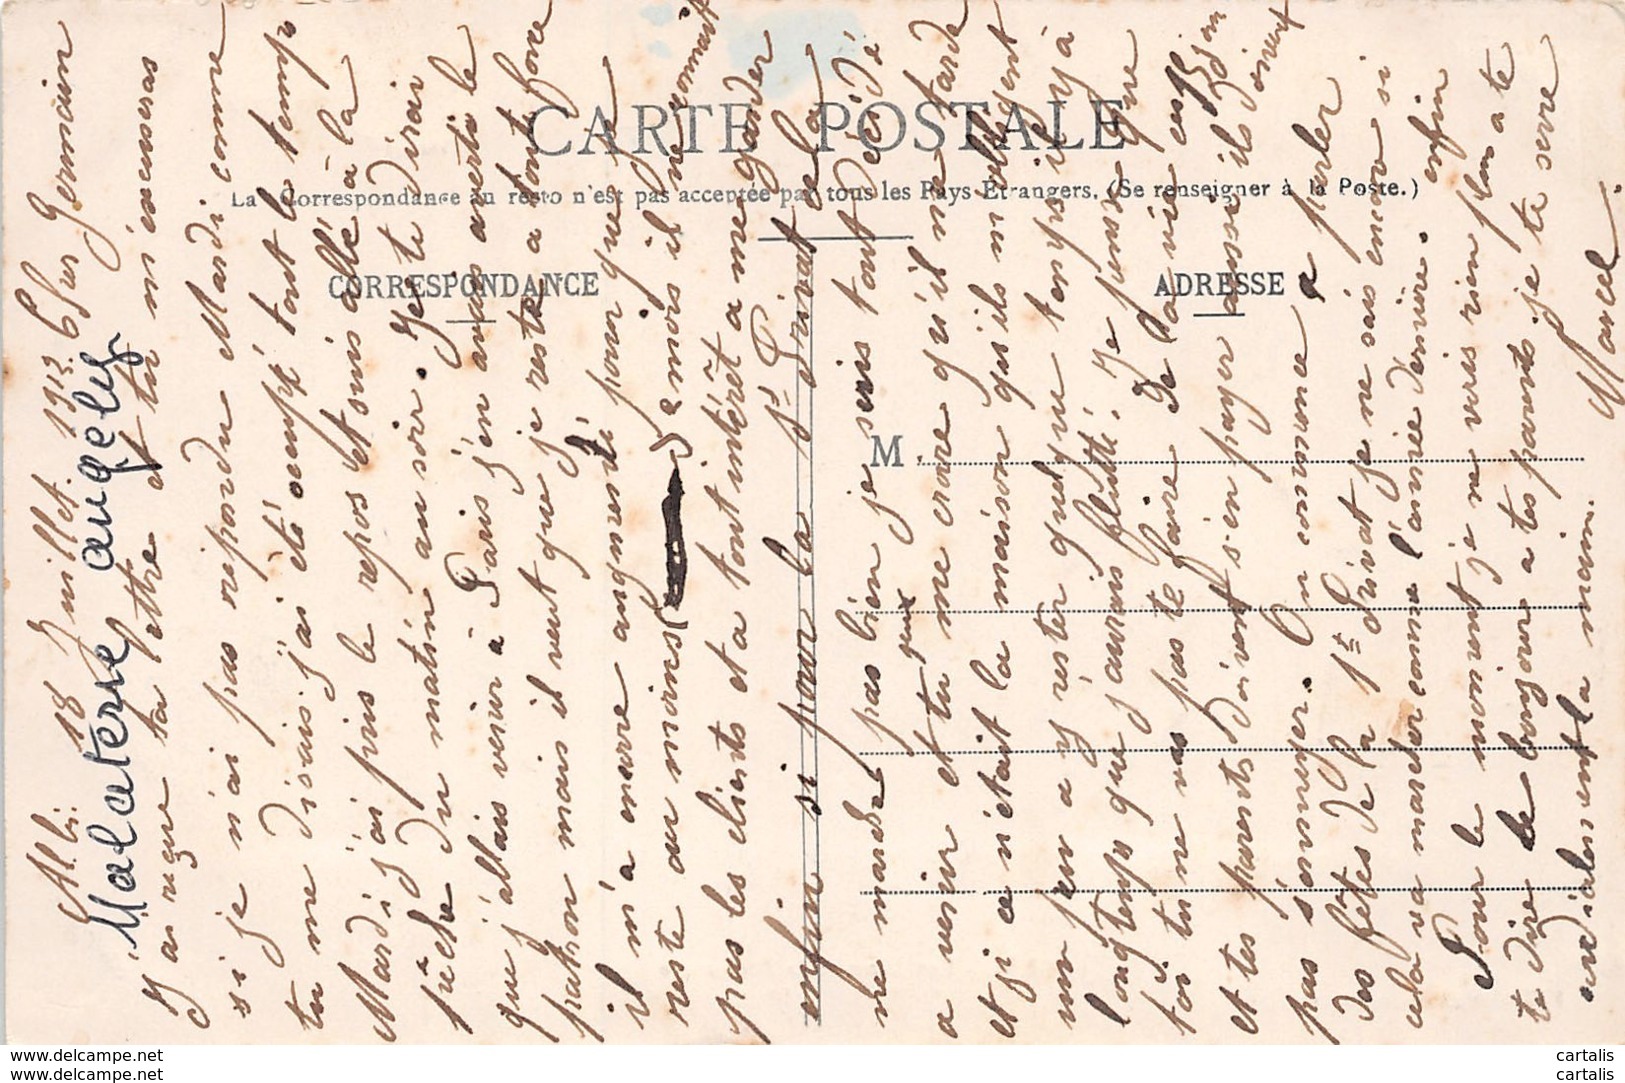 CARTE POSTALE
La Correspondance au recto n'est pas acceptée par tous les Pays Etrangers. (Se renseigner à la Poste.)
CORRESPONDANCE
ADRESSE
M
Albi 18 Juillet 1913. 6 Rue Germain
Malaterre angely
J'ai reçue ta lettre et tu m'excuseras
si je n'ai pas répondu Mardi comme
tu me disais j'ai été occupé tout le temps
Mardi j'ai pris le repos et suis allé à la
pêche du matin au soir. Je te dirai
que j'allais venir à Paris j'en avais averti le
patron mais il veut que je reste a toute force
il m'a encore augmenté pour que je
reste au moins 2 mois il ne connait
pas les clients et a tout intérêt a me garder
enfin si pour la St Privat cela
ne marche pas bien je serais tant décidé
a venir et tu peux me croire qu'il me tarde
et si ce n'était la maison qu'ils m'obligent
un peu a y rester quelque temps il y à
longtemps que j'aurais flutté. Je pense que
toi tu ne vas pas te faire de la vie ces jours
et tes parents doivent s'en payer aussi ils doivent
pas s'ennuyer. On commence a parler
des fêtes de la St Privat je ne sais encore si
cela va marcher comme l'année dernière. enfin
Pour le moment je ne vois rien plus a te
te dire le bonjour a tes parents je te serre
cordialement la main.
Marcel
delcampe.net
delcampe.net
cartalis
cartalis